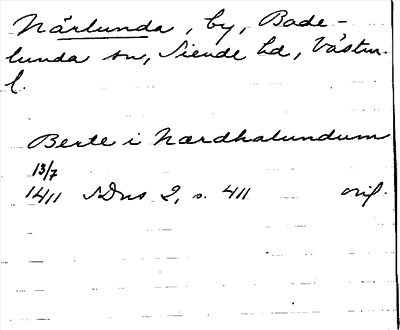 Närlunda, by, Bade-
lunda sn, Siende hd, Västm.
l.
Berte i Nærdhalundum
13/7
1411 SDns 2, s. 411 orig.